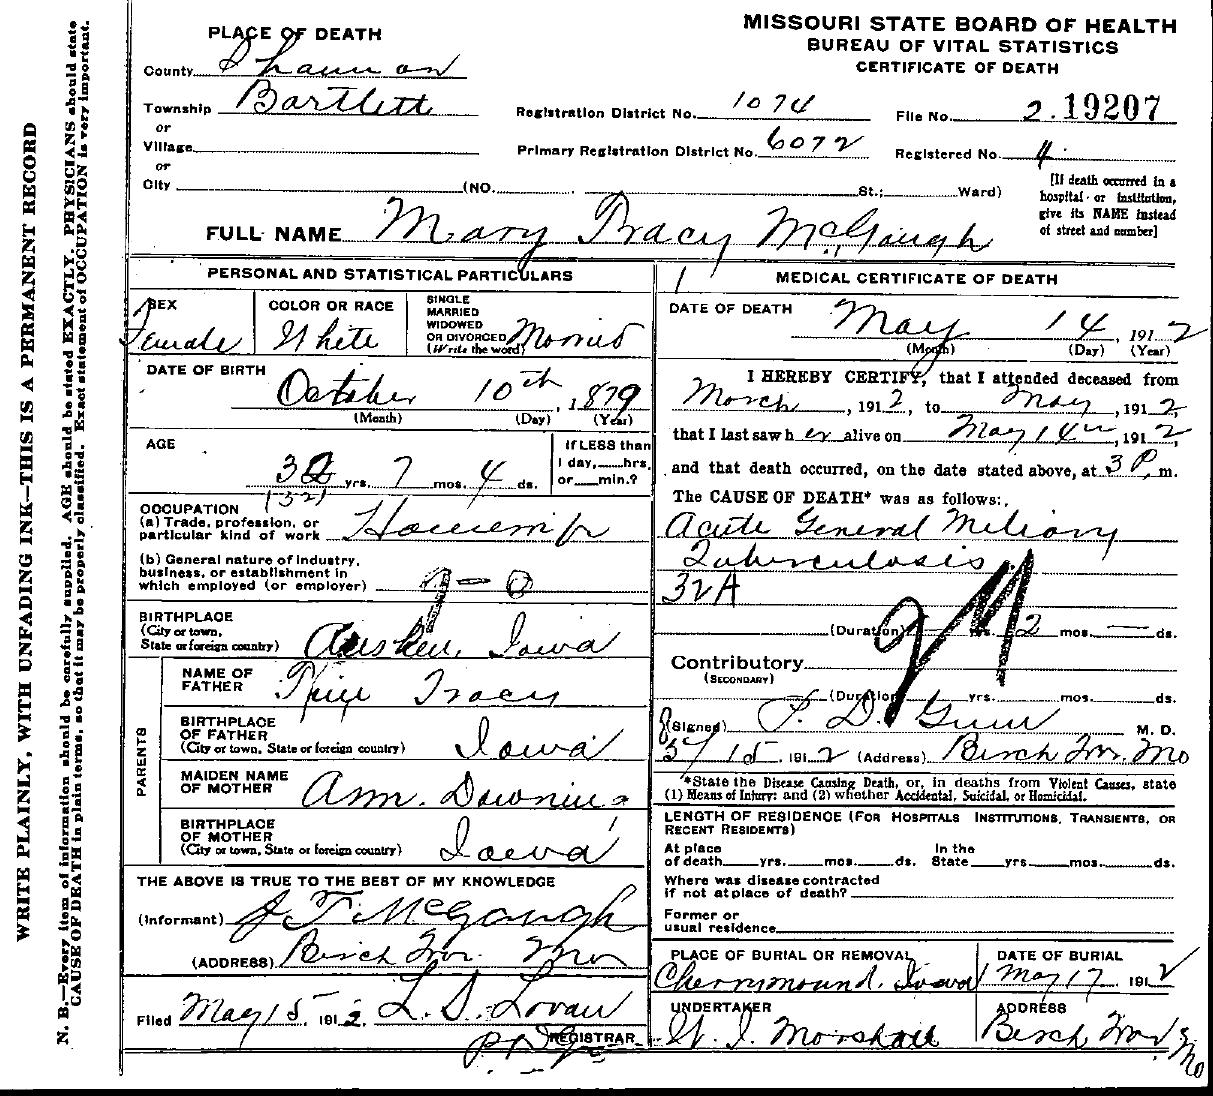 WRITE PLAINLY, WITH UNFADING INK—THIS IS A PERMANENT RECORD
N. B.—Every item of information should be carefully supplied. AGE should be stated EXACTLY. PHYSICIANS should state
CAUSE OF DEATH in plain terms, so that it may be properly classified. Exact statement of OCCUPATION is very important.
MISSOURI STATE BOARD OF HEALTH
BUREAU OF VITAL STATISTICS
CERTIFICATE OF DEATH
PLACE OF DEATH
County Shannon
Township Bartlett
or
Village
or
City (NO. St.; Ward)
Registration District No. 1074
File No. 2. 19207
Primary Registration District No. 6072
Registered No. 4
[If death occurred in a
hospital or institution,
give its NAME instead
of street and number]
FULL NAME Mary Tracy McGaugh
PERSONAL AND STATISTICAL PARTICULARS
SEX
Female
COLOR OR RACE
White
SINGLE
MARRIED
WIDOWED
OR DIVORCED
(Write the word) Married
DATE OF BIRTH
October 10th, 1879
(Month) (Day) (Year)
AGE
yrs. 7 mos. 4 ds.
(32)
If LESS than
1 day, hrs.
or min.?
OCCUPATION
(a) Trade, profession, or
particular kind of work
(b) General nature of Industry,
business, or establishment in
which employed (or employer)
9-0
BIRTHPLACE
(City or town,
State or foreign country) Iowa
PARENTS
NAME OF
FATHER Tracy
BIRTHPLACE
OF FATHER
(City or town, State or foreign country) Iowa
MAIDEN NAME
OF MOTHER Ann Downing
BIRTHPLACE
OF MOTHER
(City or town, State or foreign country) Iowa
THE ABOVE IS TRUE TO THE BEST OF MY KNOWLEDGE
(Informant) J T McGaugh
(ADDRESS) Birch Tree Mo
Filed May 15, 1912 L. S. Lovan
REGISTRAR
MEDICAL CERTIFICATE OF DEATH
DATE OF DEATH
May 14, 1912
(Month) (Day) (Year)
I HEREBY CERTIFY, that I attended deceased from
March, 1912, to May, 1912,
that I last saw her alive on May 14th, 1912,
and that death occurred, on the date stated above, at 3 P. m.
The CAUSE OF DEATH* was as follows:
Acute General Miliary
Tuberculosis
32A
(Duration) yrs. 2 mos. — ds.
Contributory
(SECONDARY)
(Duration) yrs. mos. ds.
(Signed) D. Gunn M. D.
5/15, 1912 (Address) Birch Tree, Mo
*State the Disease Causing Death, or, in deaths from Violent Causes, state
(1) Means of Injury; and (2) whether Accidental, Suicidal, or Homicidal.
LENGTH OF RESIDENCE (FOR HOSPITALS INSTITUTIONS, TRANSIENTS, OR
RECENT RESIDENTS)
At place
of death yrs. mos. ds.
In the
State yrs. mos. ds.
Where was disease contracted
if not at place of death?
Former or
usual residence
PLACE OF BURIAL OR REMOVAL
Cherrymound, Iowa
DATE OF BURIAL
May 17 1912
UNDERTAKER
W. J. Marshall
ADDRESS
Birch Tree Mo